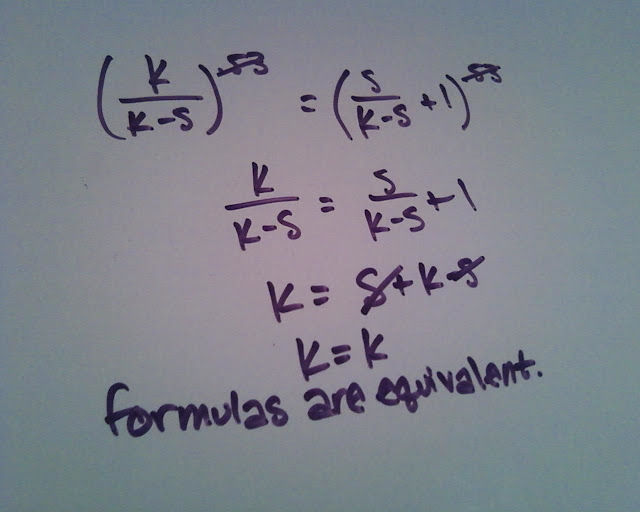 (K/(K-S))^53 = (S/(K-S) + 1)^53
K/(K-S) = S/(K-S) + 1
K = S + K - S
K = K
formulas are equivalent.